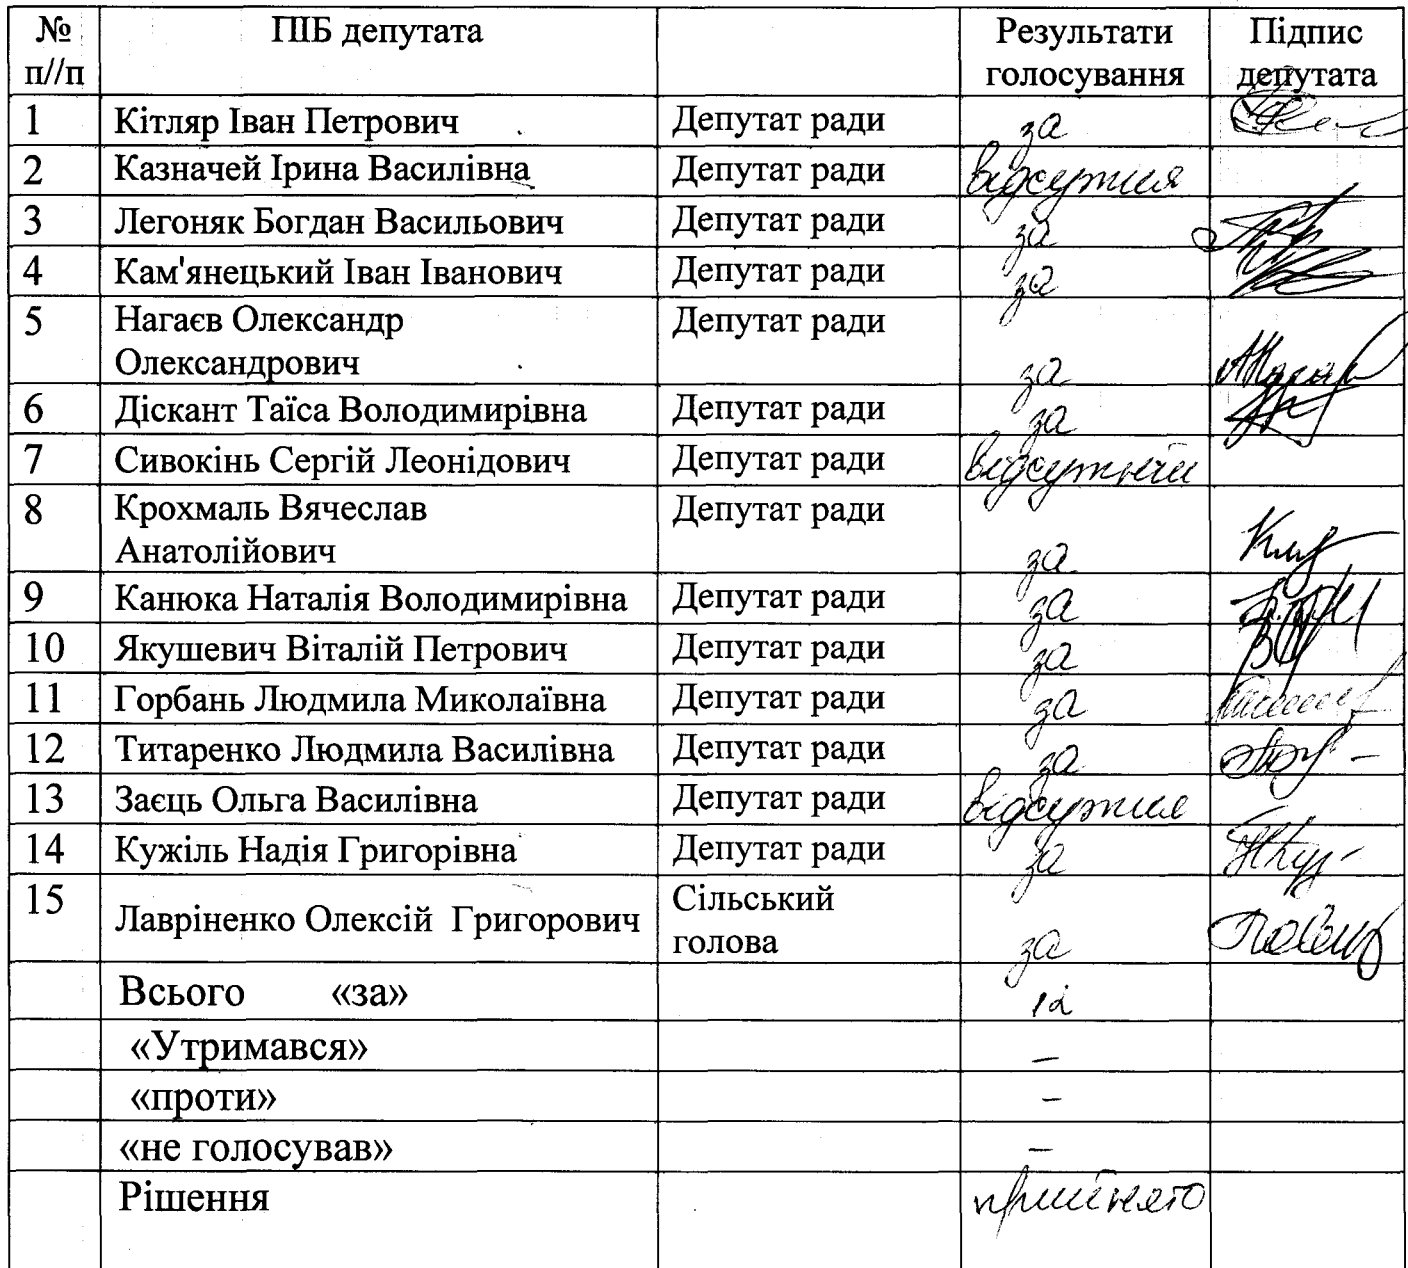 № п//п ПІБ депутата Результати голосування Підпис депутата
1 Кітляр Іван Петрович Депутат ради за
2 Казначей Ірина Василівна Депутат ради відсутня
3 Легоняк Богдан Васильович Депутат ради за
4 Кам'янецький Іван Іванович Депутат ради за
5 Нагаєв Олександр Депутат ради
Олександрович за
6 Діскант Таїса Володимирівна Депутат ради за
7 Сивокінь Сергій Леонідович Депутат ради відсутній
8 Крохмаль Вячеслав Депутат ради
Анатолійович за
9 Канюка Наталія Володимирівна Депутат ради за
10 Якушевич Віталій Петрович Депутат ради за
11 Горбань Людмила Миколаївна Депутат ради за
12 Титаренко Людмила Василівна Депутат ради за
13 Заєць Ольга Василівна Депутат ради відсутня
14 Кужіль Надія Григорівна Депутат ради за
15 Лавріненко Олексій Григорович Сільський голова за
Всього «за» 12
«Утримався» –
«проти» –
«не голосував» –
Рішення прийнято